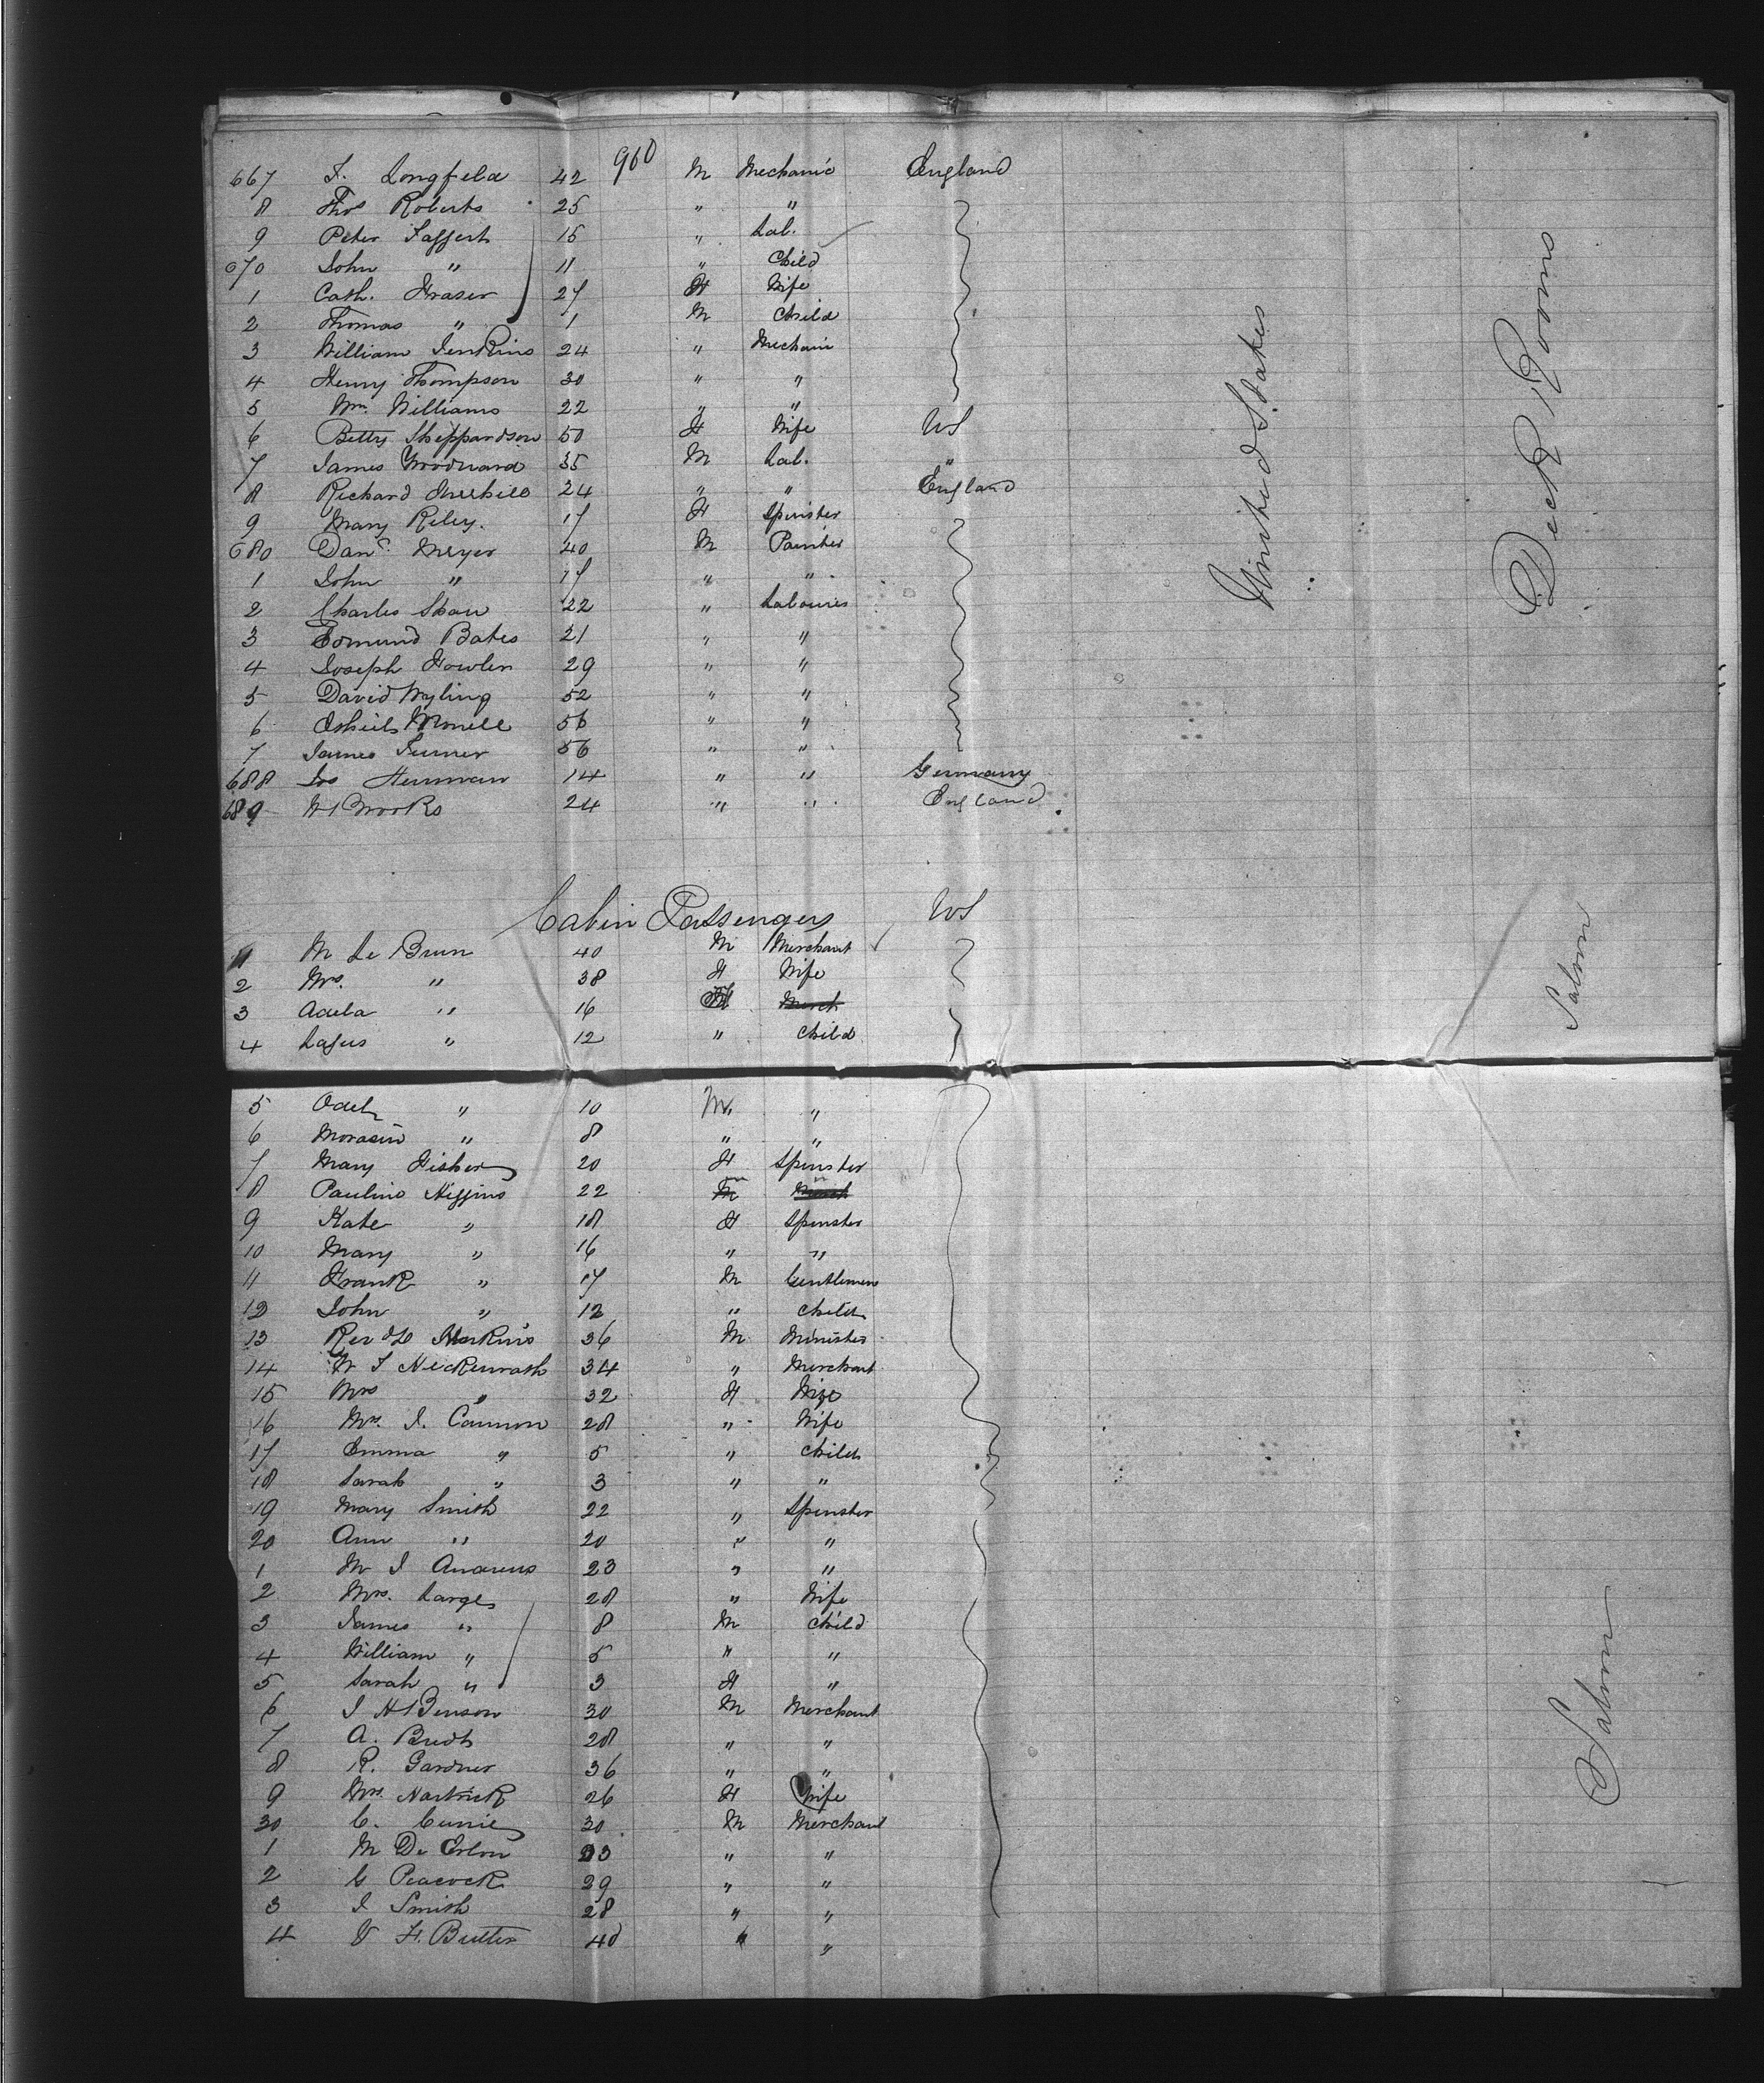 960
667 J. Longfeld 42 M Mechanic England
8 Thos Roberts 25 " "
9 Peter Taffert 15 " Lab.
670 John " 11 " Child
1 Cath. Fraser 27 F Wife
2 Thomas " 1 M Child
3 William Jenkins 24 " Mechani
4 Henry Thompson 30 " "
5 Wm. Williams 22 " "
6 Betty Sheppardson 50 F Wife US
7 James Woodward 35 M Lab. "
8 Richard 24 " " England
9 Mary Riley. 17 F Spinster
680 Danl. Meyer 40 M Painter
1 John " 17 " "
2 Charles Shaw 22 " Labourer
3 Edmund Bates 21 " "
4 Joseph Fowler 29 " "
5 David Wyling 52 " "
6 56 " "
7 James Turner 56 " "
688 Jos Herman 14 " " Germany
689 W Brooks 24 " " England
United States
Deck Rooms
Cabin Passengers US
1 M Le Brun 40 M Merchant
2 Mrs. " 38 F Wife
3 Adela " 16 F Merch
4 " 12 " Child
Saloon
5 " 10 M "
6 " 8 " "
7 Mary Fisher 20 F Spinster
8 Paulino Higgins 22 M
9 Kate " 18 F Spinster
10 Mary " 16 " "
11 Frank " 17 M Gentlemen
12 John " 12 " Child
13 Rev 36 M Minister
14 W J Heckenrath 34 " Merchant
15 Mrs " 32 F Wife
16 Mrs. J. Cannon 28 " Wife
17 Emma " 5 " Child
18 Sarah " 3 " "
19 Mary Smith 22 " Spinster
20 Ann " 20 " "
1 M J Andrews 23 " "
2 Mrs. Large 28 " Wife
3 James " 8 M Child
4 William " 5 " "
5 Sarah " 3 F "
6 J H Benson 30 M Merchant
7 A. 28 " "
8 R. Gardner 36 " "
9 Mrs. Hartrick 26 F Wife
30 C. Currie 30 M Merchant
1 M De Erlon 33 " "
2 G Peacock 29 " "
3 J Smith 28 " "
4 F. Butler 40 " "
Saloon